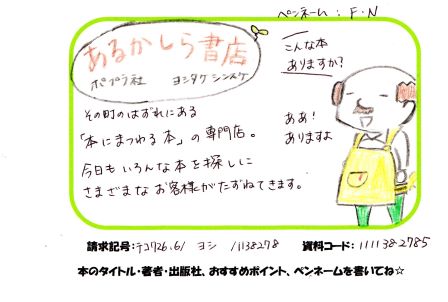 ペンネーム：F・N
あるかしら書店
ポプラ社　ヨシタケ シンスケ
こんな本
ありますか？
その町のはずれにある
「本にまつわる本」の専門店。
今日もいろんな本を探しに
さまざまなお客様がたずねてきます。
ああ！
ありますよ
請求記号：テコ726.6/ ヨシ /1138278　資料コード：111138-2785
本のタイトル・著者・出版社、おすすめポイント、ペンネームを書いてね☆